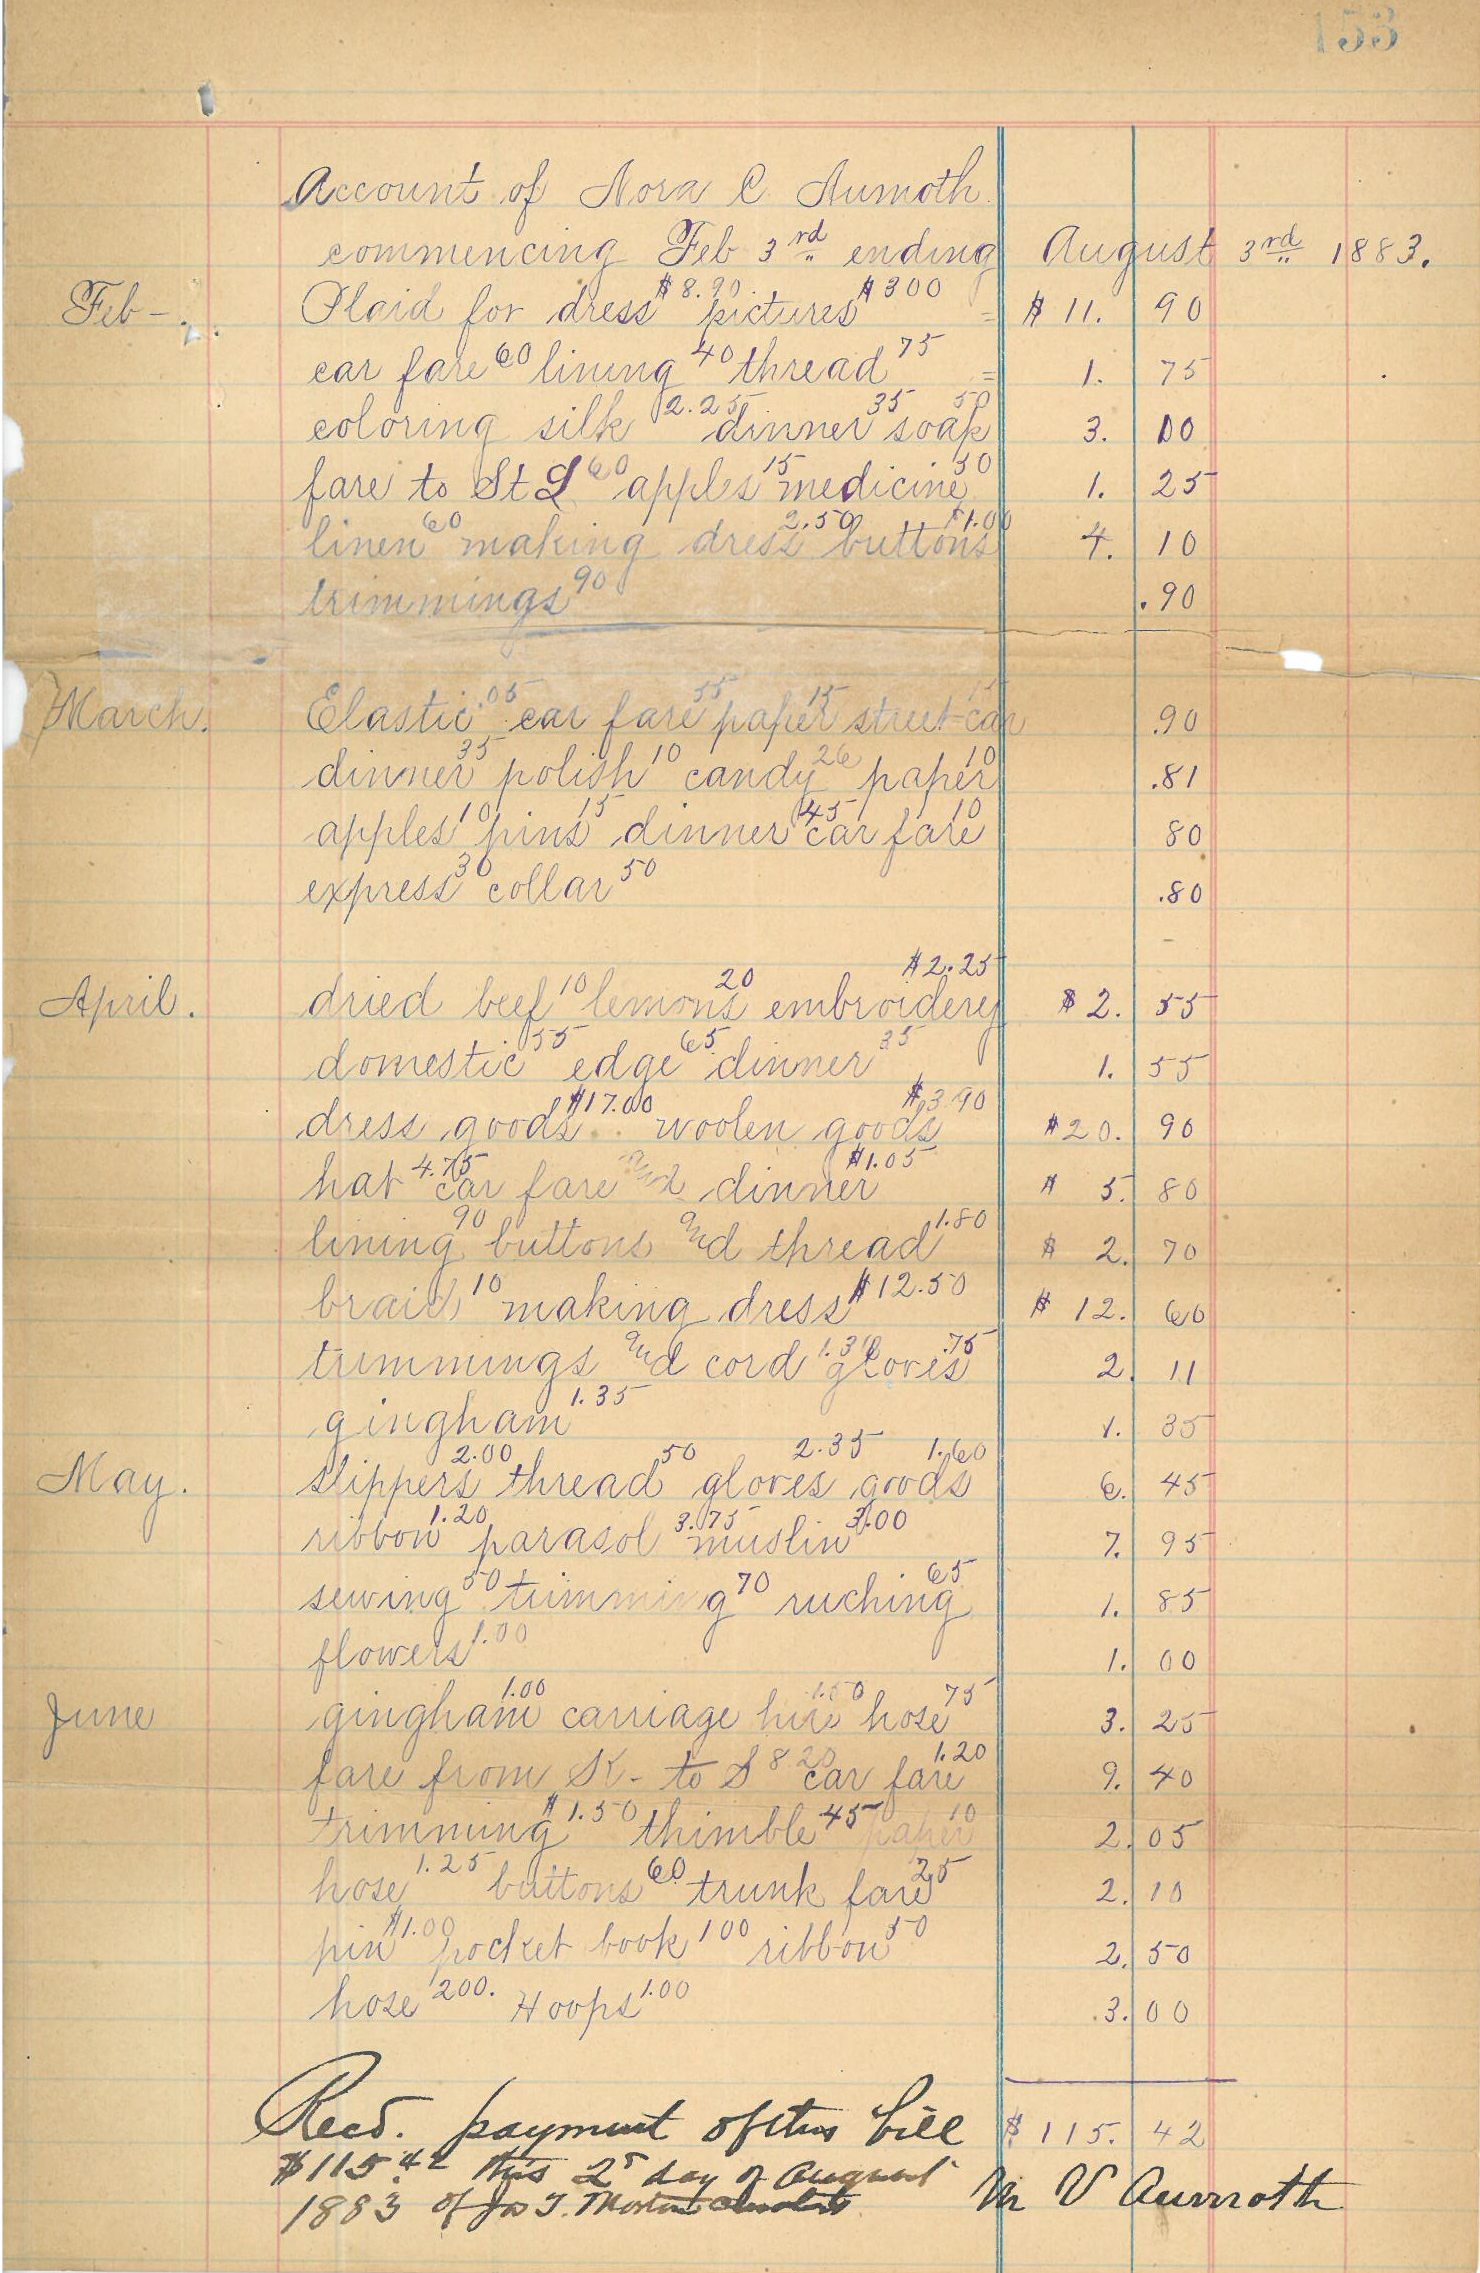 Account of Nora C Aumoth
commencing Feb 3rd ending August 3rd 1883.
Feb - Plaid for dress $8.90 pictures $300 = $ 11. 90
car fare 60 lining 40 thread 75 = 1. 75
coloring silk 2.25 dinner 35 soap 50 3. 10
fare to St L 60 apples 15 medicine 50 1. 25
linen 60 making dress 2.50 buttons $1.00 4. 10
trimmings 90 .90
March. Elastic .05 car fare 55 paper 15 street car 15 .90
dinner 35 polish 10 candy 26 paper 10 .81
apples 10 pins 15 dinner 45 car fare 10 80
express 30 collar 50 .80
April. dried beef 10 lemons 20 embroidery $2.25 $ 2. 55
domestic 55 edge 65 dinner 35 1. 55
dress goods $17.00 woolen goods $3.90 $20. 90
hat 4.75 car fare and dinner $1.05 $ 5. 80
lining 90 buttons and thread 1.80 $ 2. 70
braid 10 making dress $12.50 $ 12. 60
trimmings and cord gloves .75 2. 11
gingham 1.35 1. 35
May. slippers 2.00 thread 50 gloves 2.35 goods 1.60 6. 45
ribbon 1.20 parasol 3.75 muslin 3.00 7. 95
sewing 50 trimming 70 ruching 65 1. 85
flowers 1.00 1. 00
June gingham 1.00 carriage hire 1.50 hose 75 3. 25
fare from K - to S 8 20 car fare 1.20 9. 40
trimming $1.50 thimble 45 paper 10 2. 05
hose 1.25 buttons 60 trunk fare 25 2. 10
pin $1.00 pocket book 100 ribbon 50 2. 50
hose 200. Hoops 1.00 3. 00
$ 115. 42
Recd. payment of this bill
$115.42 this 2d day of August
1883 of Jas T.
M V Aumoth